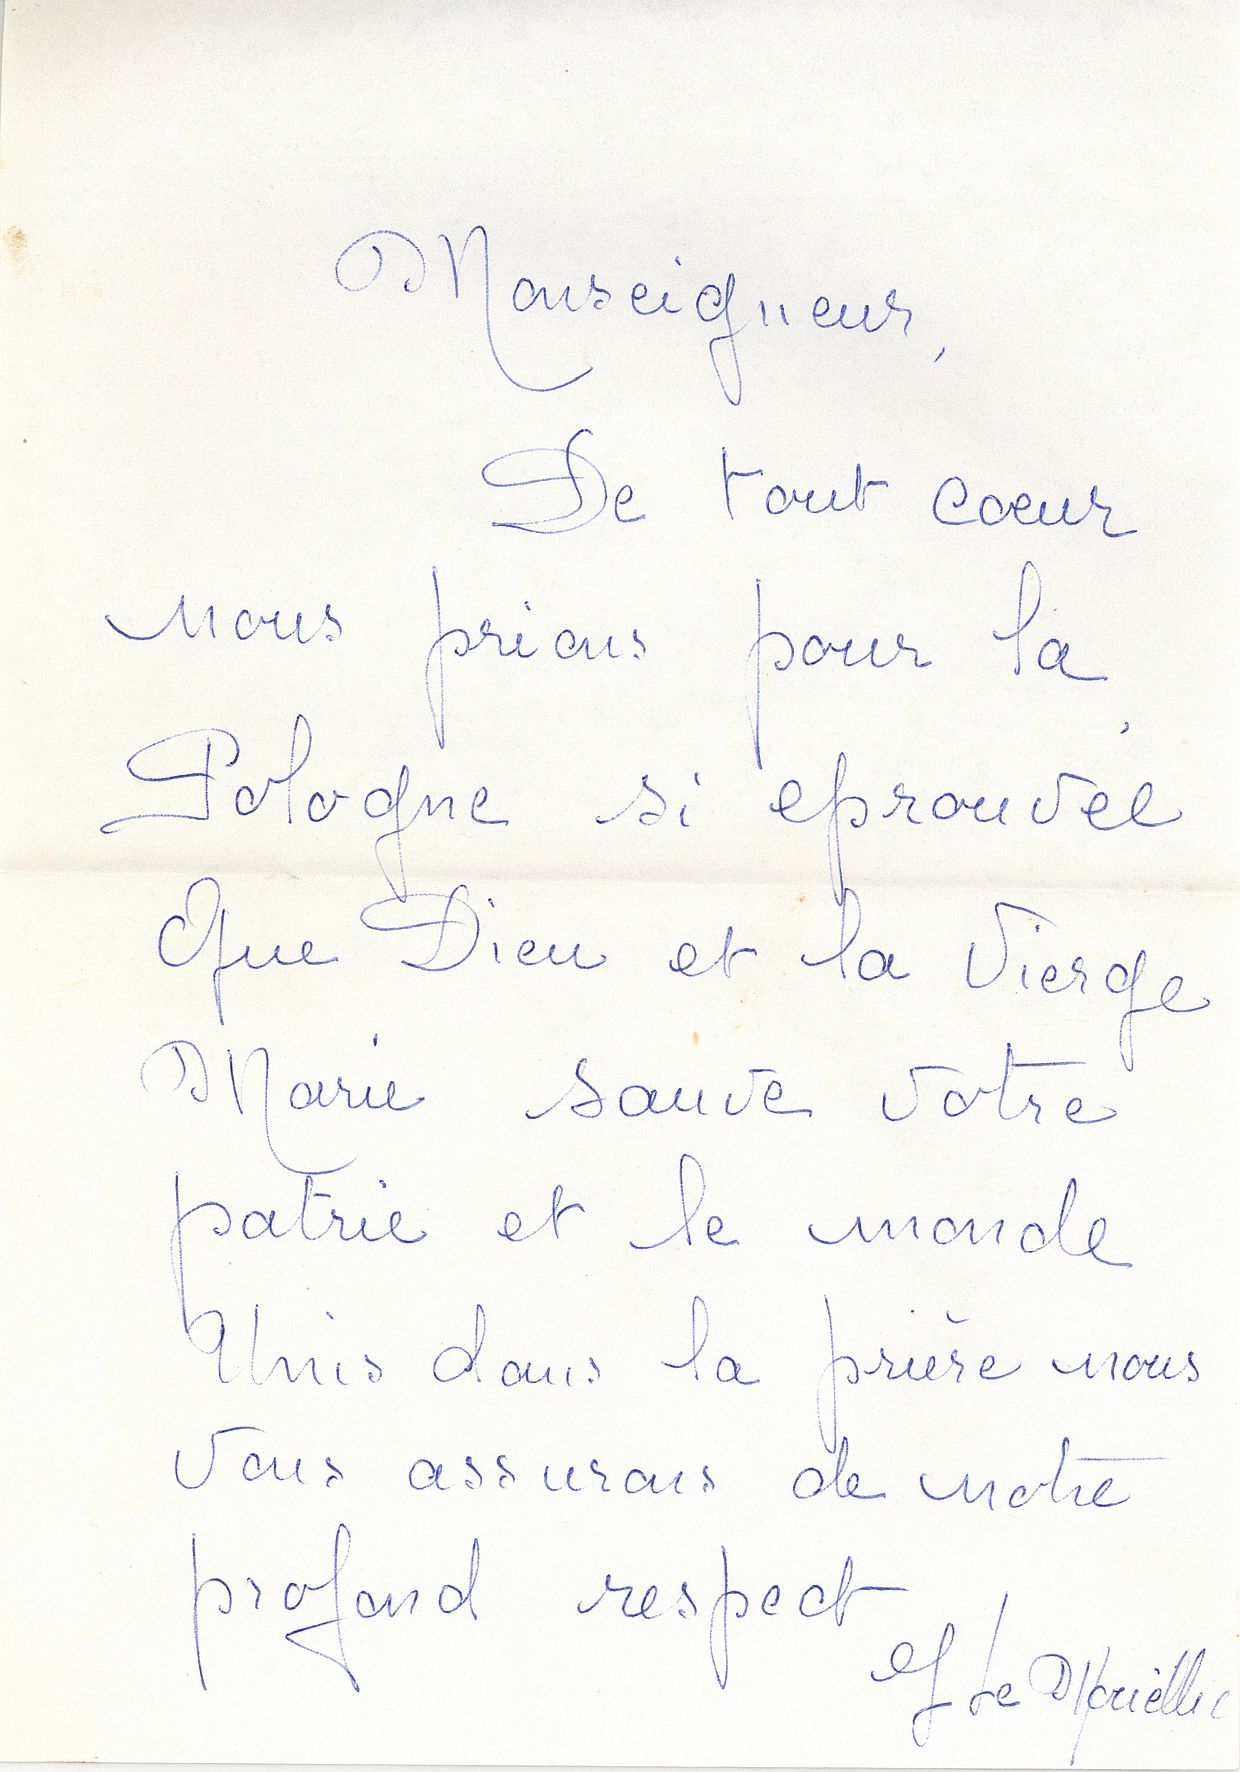 Monseigneur,
De tout coeur
nous prions pour la
Pologne si éprouvee
Que Dieu et la Vierge
Marie sauve votre
patrie et le monde
Unis dans la prière nous
vous assurons de notre
profond respect
Le